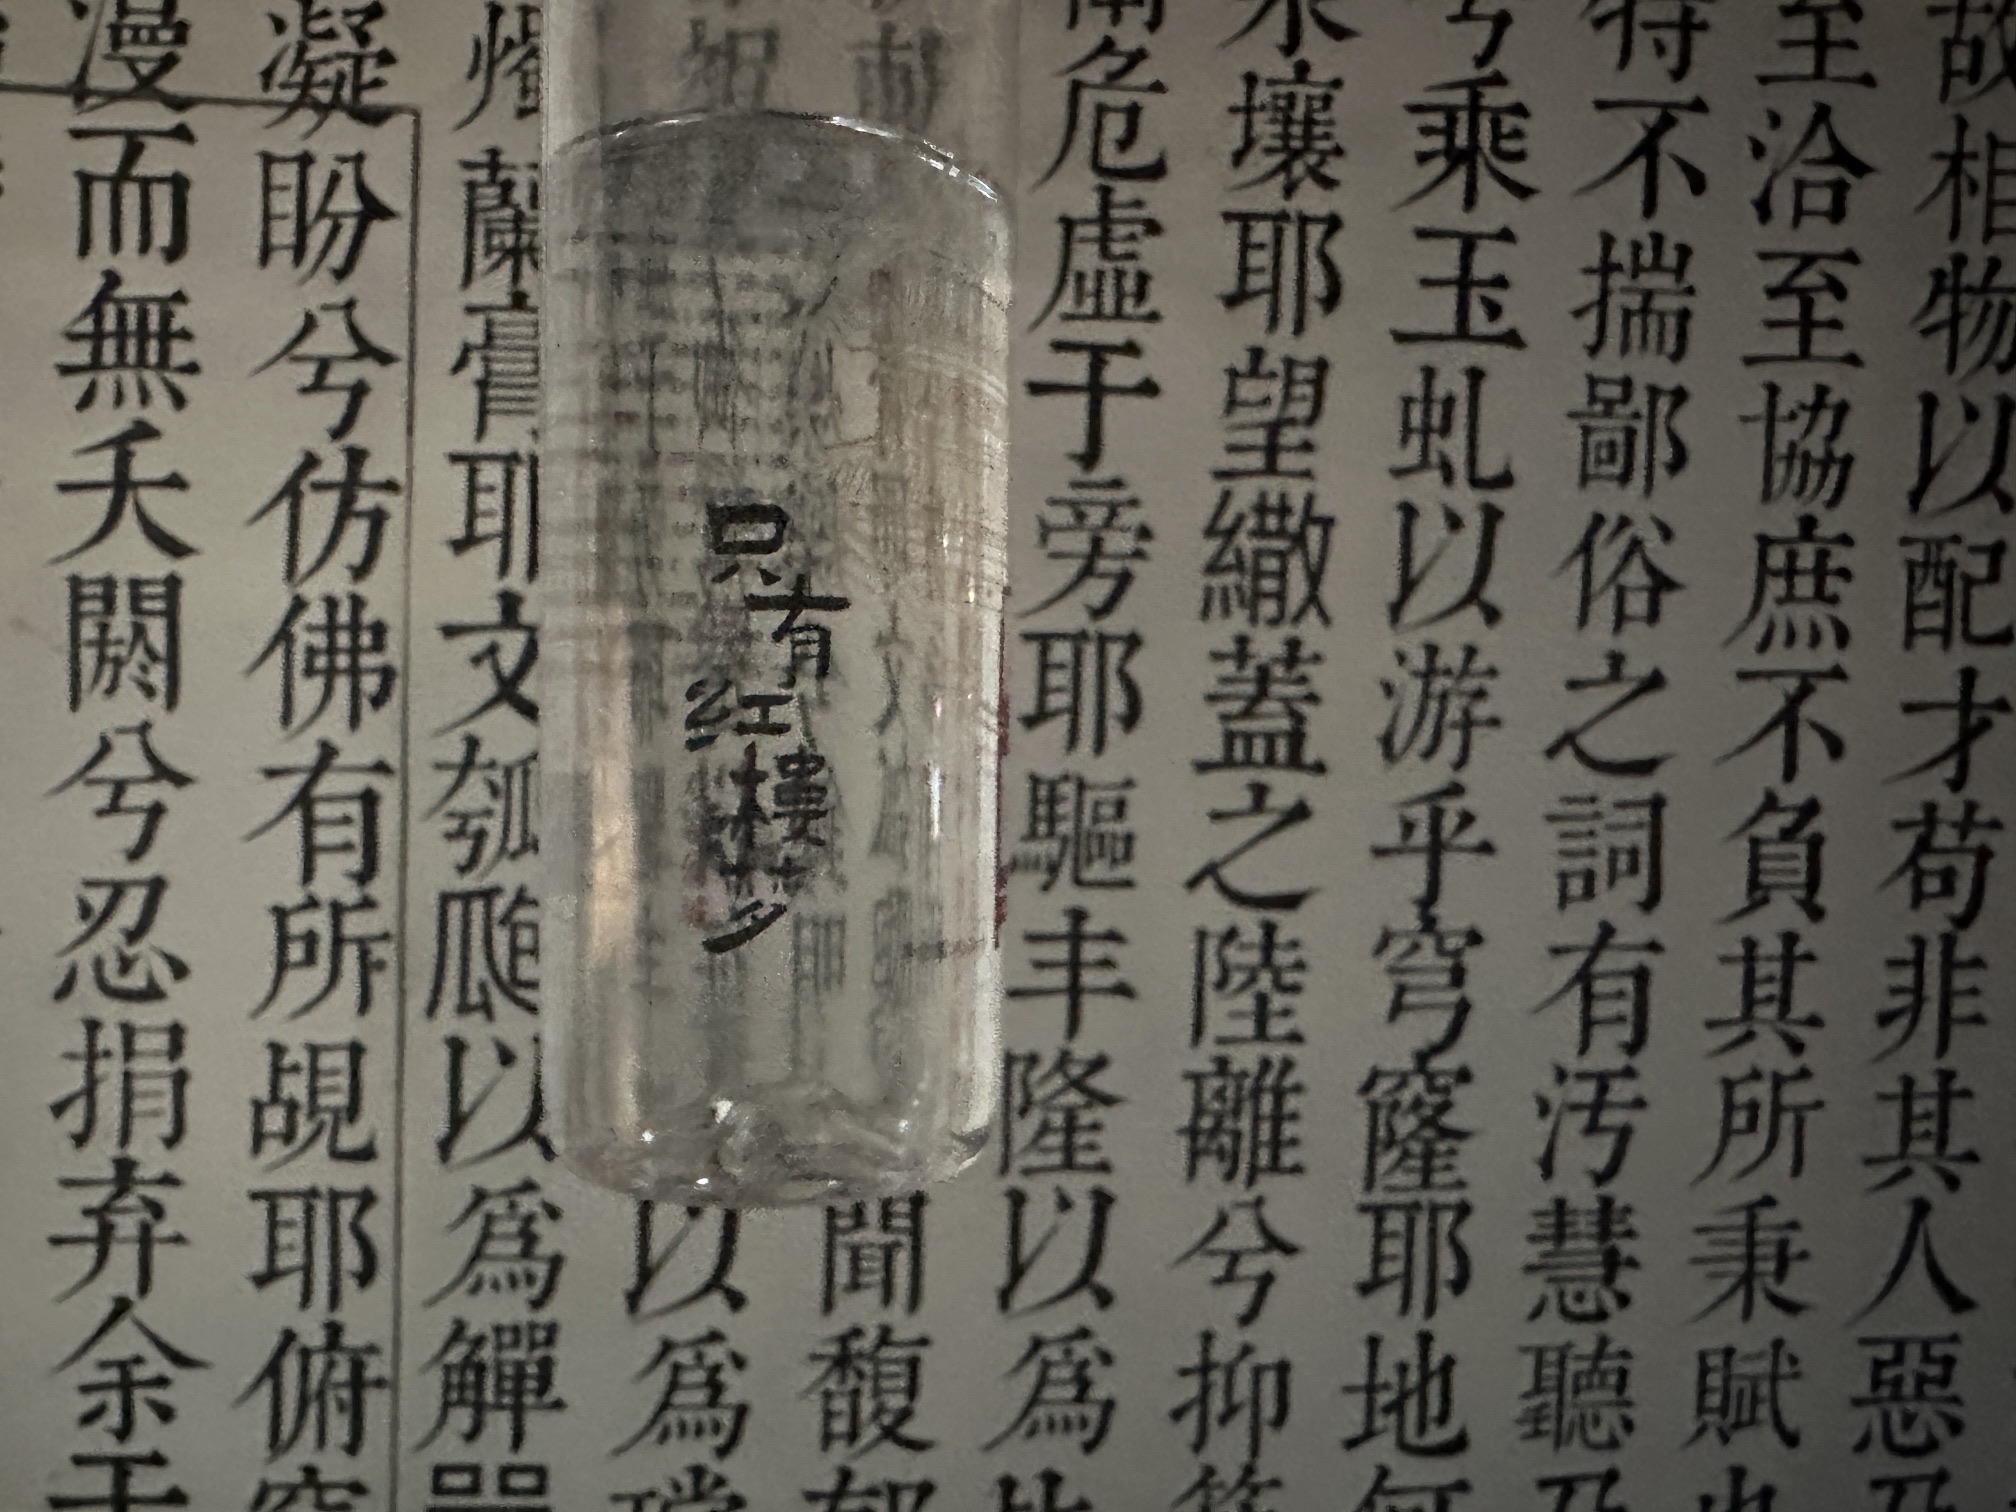 故相物以配才苟非其人惡乃
至洽至協庶不負其所秉賦也
特不揣鄙俗之詞有汚慧聽乃
兮乘玉虬以游乎穹窿耶地何
壤耶望繖蓋之陸離兮抑
危虛于旁耶驅丰隆以爲
聞馥
以爲
蘭膏耶文瓟瓟以爲觶斝
凝盼兮仿佛有所覘耶俯窺
漫而無夭閼兮忍捐弃余于
只有红楼梦